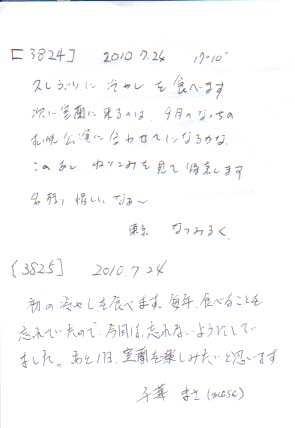 [3824] 2010.7.24 17:10
久しぶりに冷やしを食べます
次に室蘭に来るのは、9月のなっちの
札幌公演に合わせてになるかな
このあと ねりこみを見て帰京します
名残り惜しいなぁ〜
東京 なつみるく
[3825] 2010.7.24
初の冷やしを食べます。毎年、食べることを
忘れていたので、今回は、忘れないようにしてい
ました。あと1日、室蘭を楽しみたいと思います。
千葉 まさ (masa)